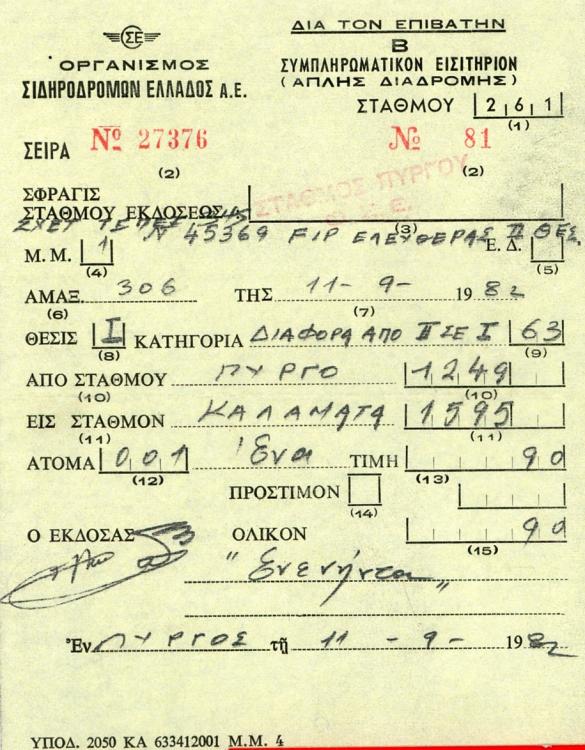 ΣΕ
ΟΡΓΑΝΙΣΜΟΣ
ΣΙΔΗΡΟΔΡΟΜΩΝ ΕΛΛΑΔΟΣ Α.Ε.
ΔΙΑ ΤΟΝ ΕΠΙΒΑΤΗΝ
Β
ΣΥΜΠΛΗΡΩΜΑΤΙΚΟΝ ΕΙΣΙΤΗΡΙΟΝ
(ΑΠΛΗΣ ΔΙΑΔΡΟΜΗΣ)
ΣΤΑΘΜΟΥ 261
(1)
ΣΕΙΡΑ № 27376 № 81
(2) (2)
ΣΤΑΘΜΟΣ ΠΥΡΓΟΥ
Ο.Σ.Ε.
ΣΦΡΑΓΙΣ
ΣΤΑΘΜΟΥ ΕΚΔΟΣΕΩΣ
(3)
Ν 45369 FIP ΕΛΕΥΘΕΡΑΣ ΙΙ ΘΕΣ.
Μ.Μ. 1 Ε.Δ.
(4) (5)
ΑΜΑΞ. 306 ΤΗΣ 11-9-1982
(6) (7)
ΘΕΣΙΣ Ι ΚΑΤΗΓΟΡΙΑ ΔΙΑΦΟΡΑ ΑΠΟ ΙΙ ΣΕ Ι 63
(8) (9)
ΑΠΟ ΣΤΑΘΜΟΥ ΠΥΡΓΟ 1249
(10) (10)
ΕΙΣ ΣΤΑΘΜΟΝ ΚΑΛΑΜΑΤΑ 1595
(11) (11)
ΑΤΟΜΑ 001 Ένα ΤΙΜΗ 90
(12) (13)
ΠΡΟΣΤΙΜΟΝ
(14)
Ο ΕΚΔΟΣΑΣ ΟΛΙΚΟΝ 90
(15)
"Ενενήντα"
Ἐν ΠΥΡΓΟΣ τῇ 11-9-1982
ΥΠΟΔ. 2050 ΚΑ 633412001 Μ.Μ. 4